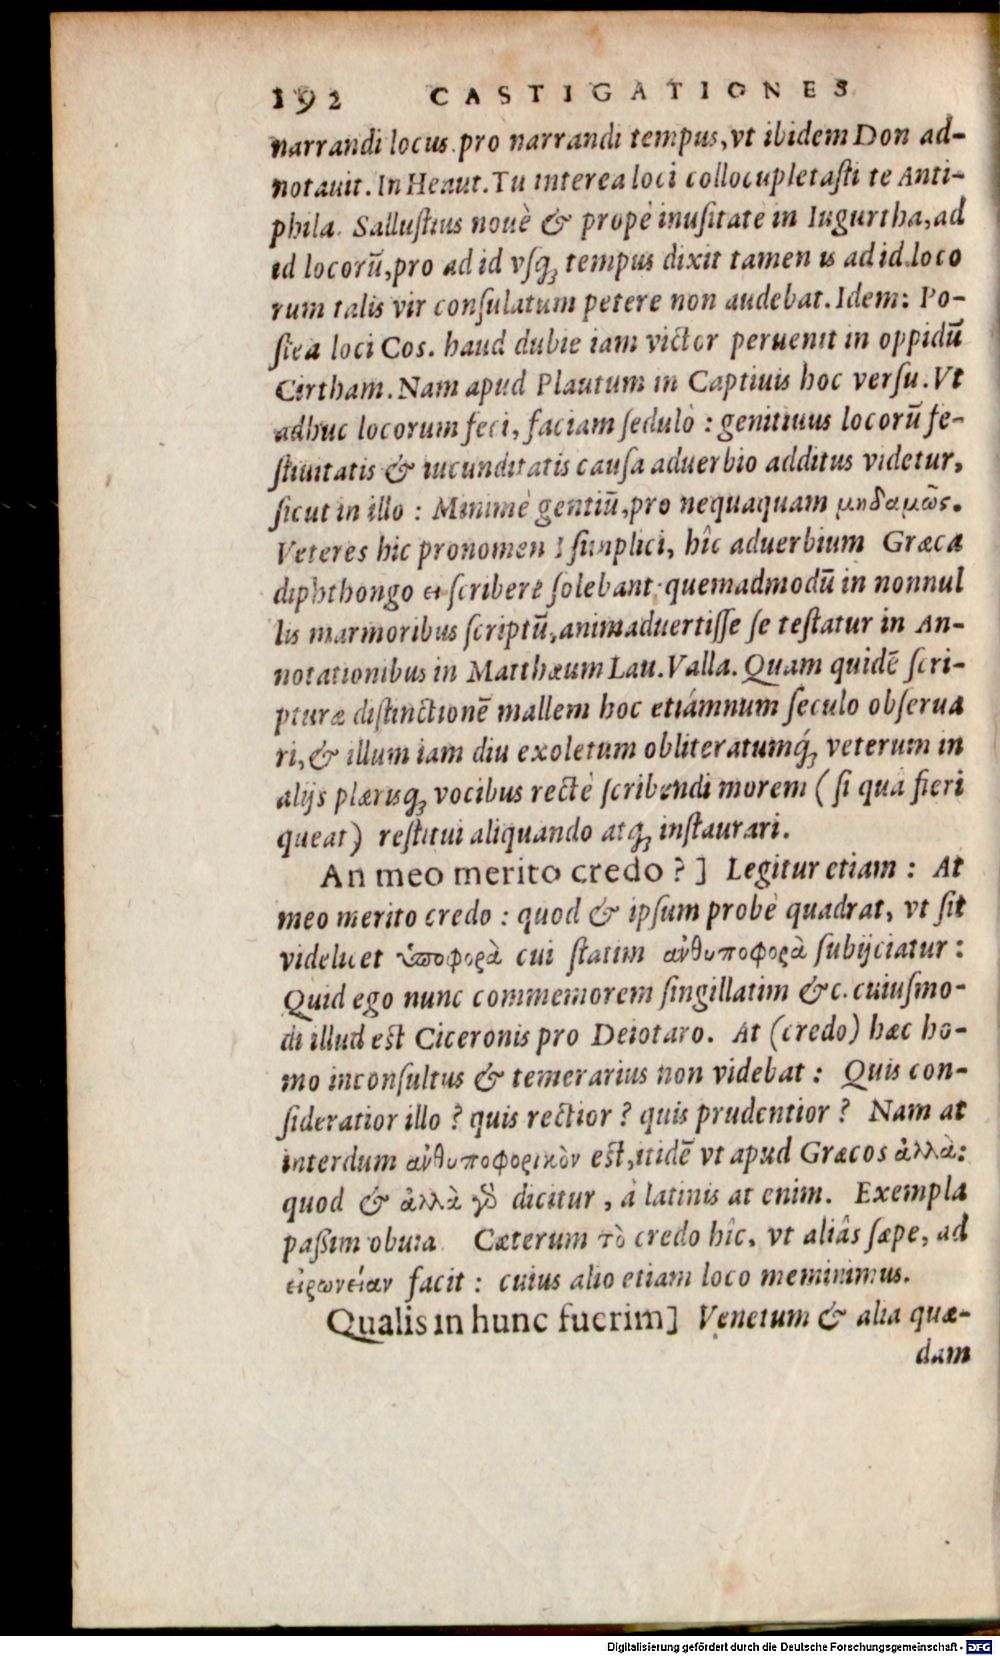 192 CASTIGATIONES
narrandi locus pro narrandi tempus, vt ibidem Don ad-
notauit. In Heaut. Tu interea loci collocupletasti te Anti-
phila. Sallustius nouè & propè inusitate in Iugurtha, ad
id locorū, pro ad id vsq́; tempus dixit tamen is ad id loco
rum talis vir consulatum petere non audebat. Idem: Po-
stea loci Cos. haud dubie iam victor peruenit in oppidū
Cirtham. Nam apud Plautum in Captiuis hoc versu. Vt
adhuc locorum feci, faciam sedulò : genitiuus locorū fe-
stiuitatis & iucunditatis causa aduerbio additus videtur,
sicut in illo : Minimè gentiū, pro nequaquam μηδαμῶς.
Veteres hic pronomen I simplici, hîc aduerbium Græca
diphthongo ei scribere solebant: quemadmodū in nonnul
lis marmoribus scriptū, animaduertisse se testatur in An-
notationibus in Matthæum Lau. Valla. Quam quidē scri-
pturæ distinctionē mallem hoc etiámnum seculo obserua
ri, & illum iam diu exoletum obliteratumq́; veterum in
alijs plærisq; vocibus rectè scribendi morem ( si quà fieri
queat ) restitui aliquando atq; instaurari.
An meo merito credo ? ] Legitur etiam : At
meo merito credo : quod & ipsum probè quadrat, vt sit
videlicet ὑποφορὰ cui statim ἀνθυποφορὰ subijciatur :
Quid ego nunc commemorem singillatim &c. cuiusmo-
di illud est Ciceronis pro Deiotaro. At (credo) hæc ho-
mo inconsultus & temerarius non videbat : Quis con-
sideratior illo ? quis rectior ? quis prudentior ? Nam at
interdum ἀνθυποφορικὸν est, itidē vt apud Græcos ἀλλὰ:
quod & ἀλλὰ γὰρ dicitur, à latinis at enim. Exempla
paßim obuia. Cæterum τὸ credo hîc, vt aliâs sæpe, ad
εἰρωνείαν facit : cuius alio etiam loco meminimus.
Qualis in hunc fuerim] Venetum & alia quæ-
dam
Digitalisierung gefördert durch die Deutsche Forschungsgemeinschaft - DFG